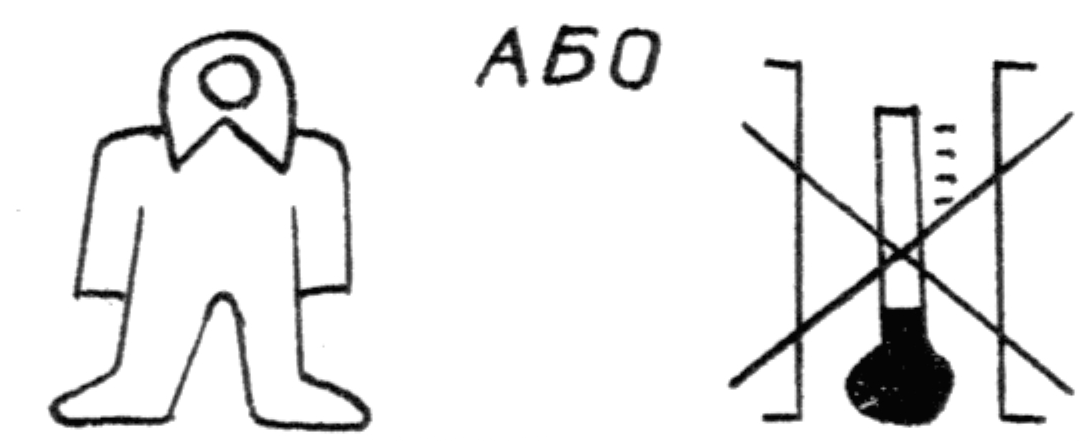 АБО